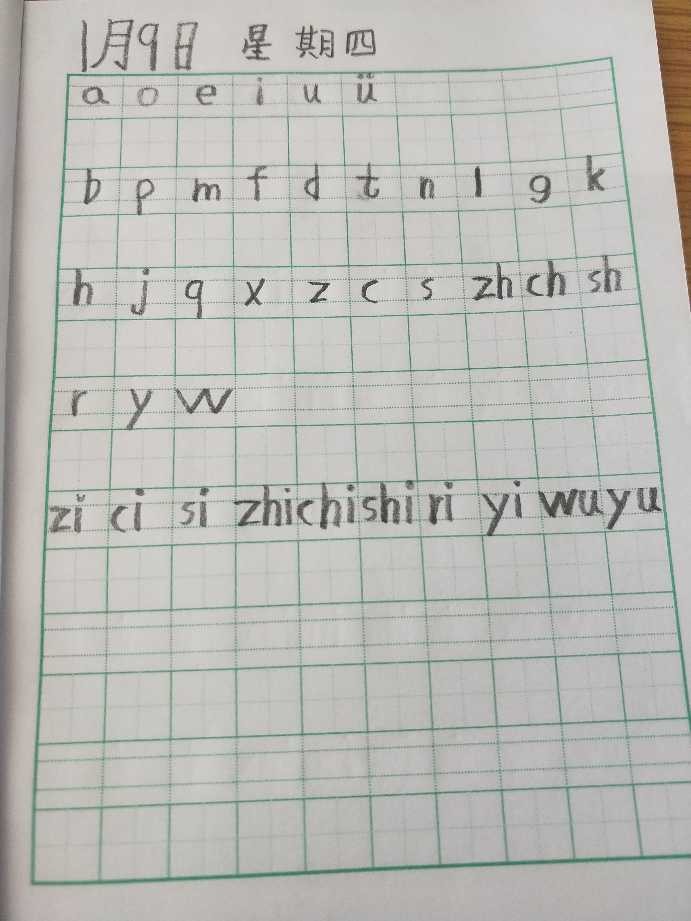 1月9日 星期四
a o e i u ü
b p m f d t n l g k
h j q x z c s zh ch sh
r y w
zǐ ci si zhi chi shi ri yi wu yu